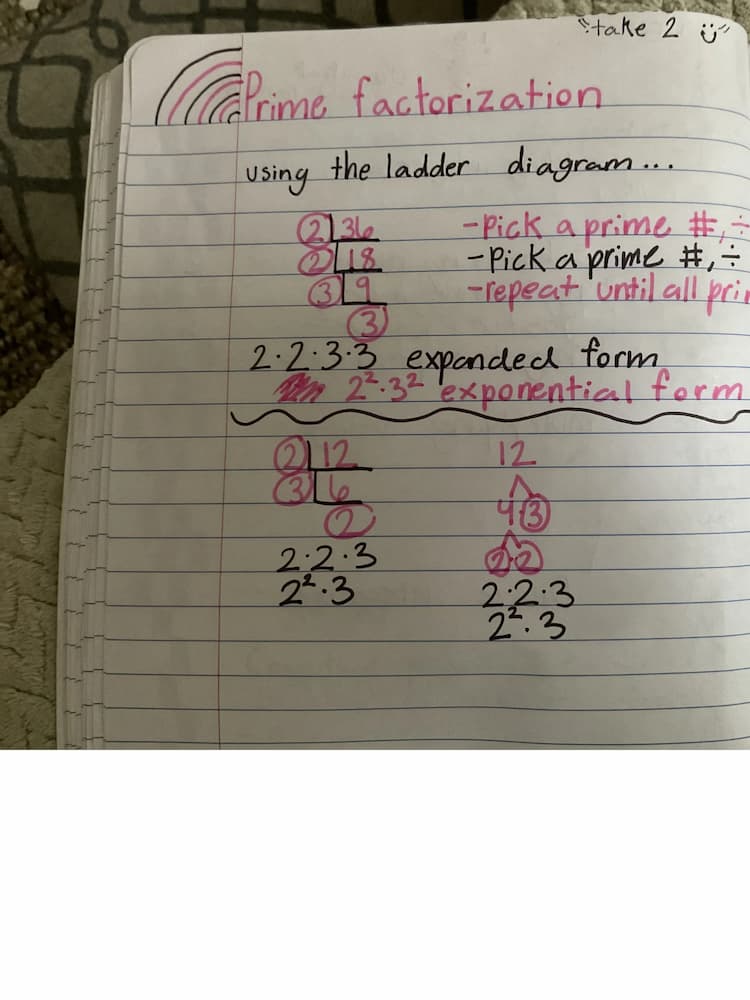 "take 2 ü"
Prime factorization
using the ladder diagram...
2 36 -Pick a prime #, ÷
2 18 -Pick a prime #, ÷
3 9 -repeat until all
3
2·2·3·3 expanded form
2²·3² exponential form
2 12 12
3 6 4 3
2 2 2
2·2·3
2²·3
2·2·3
2²·3